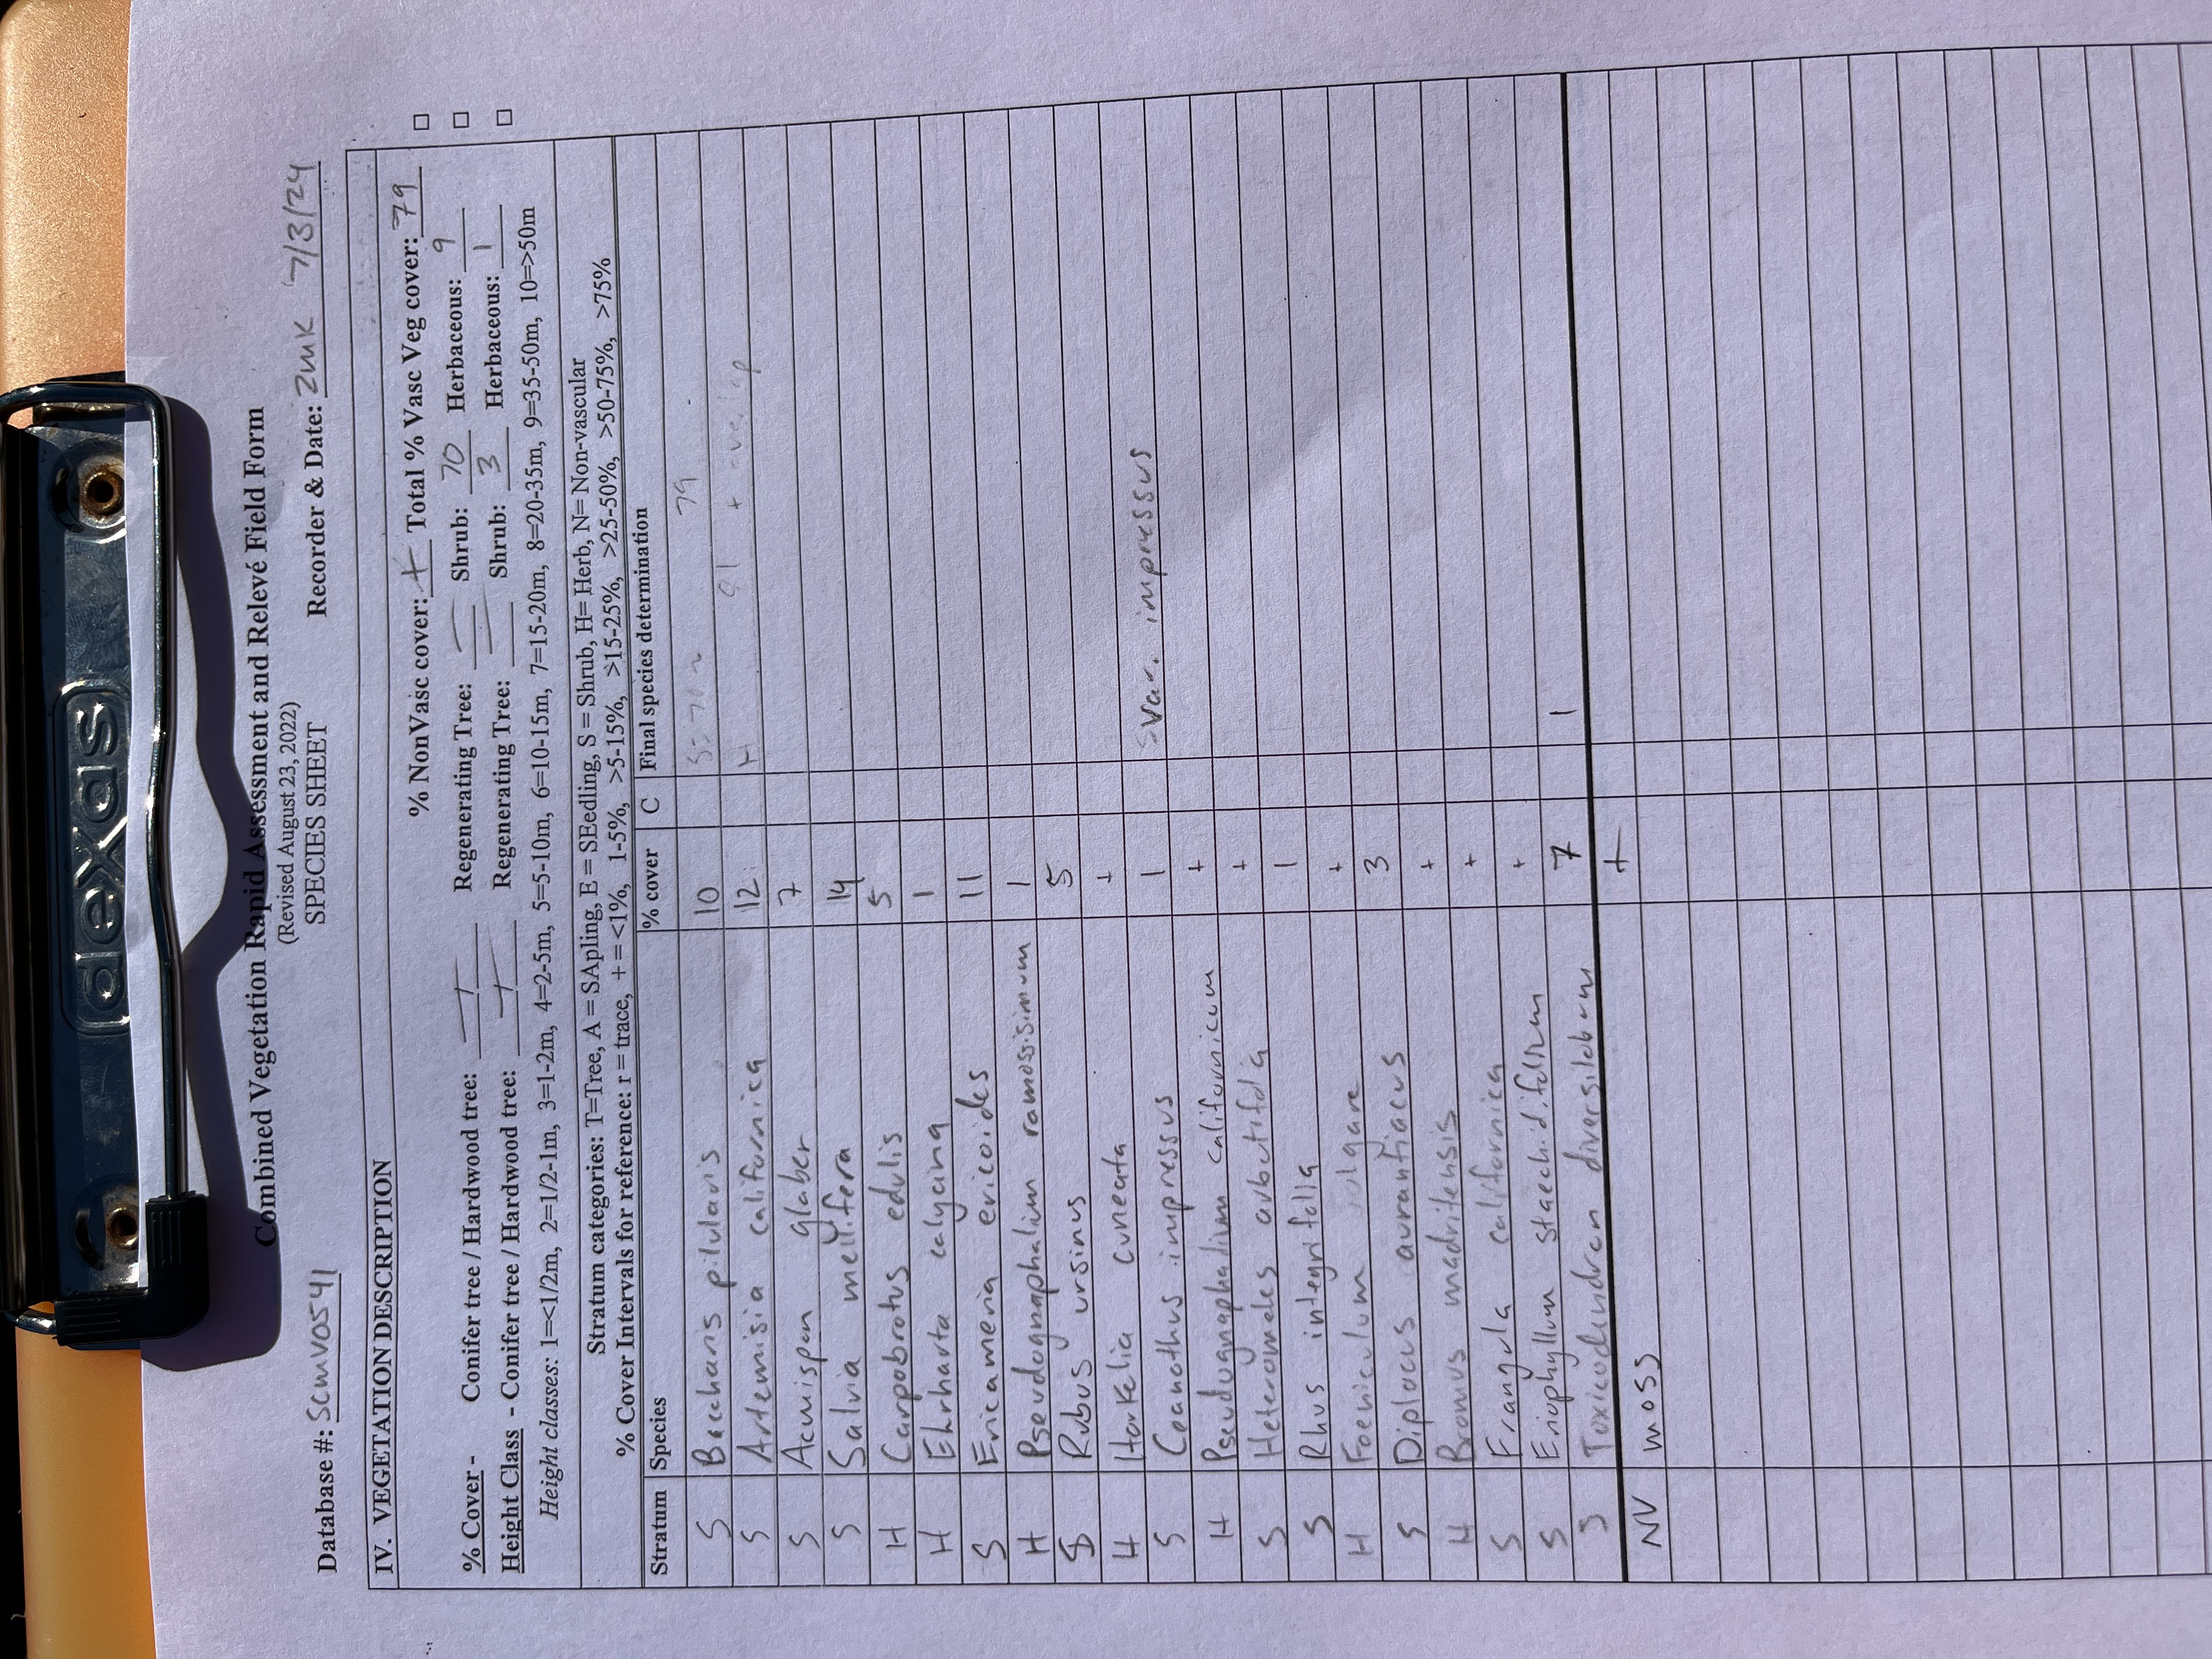 dexas
Combined Vegetation Rapid Assessment and Relevé Field Form
(Revised August 23, 2022)
SPECIES SHEET
Database #: SCMV0541 Recorder & Date: ZMK 7/3/24
IV. VEGETATION DESCRIPTION
% NonVasc cover: + Total % Vasc Veg cover: 79
% Cover - Conifer tree / Hardwood tree: / Regenerating Tree: Shrub: 70 Herbaceous: 9
Height Class - Conifer tree / Hardwood tree: / Regenerating Tree: Shrub: 3 Herbaceous: 1
Height classes: 1=<1/2m, 2=1/2-1m, 3=1-2m, 4=2-5m, 5=5-10m, 6=10-15m, 7=15-20m, 8=20-35m, 9=35-50m, 10=>50m
Stratum categories: T=Tree, A = SApling, E = SEedling, S = Shrub, H= Herb, N= Non-vascular
% Cover Intervals for reference: r = trace, + = <1%, 1-5%, >5-15%, >15-25%, >25-50%, >50-75%, >75%
Stratum Species % cover C Final species determination
S Baccharis pilularis 10
S Artemisia californica 12
S Acmispon glaber 7
S Salvia mellifera 14
H Carpobrotus edulis 5
H Ehrharta calycina 1
S Ericameria ericoides 11
H Pseudognaphalium ramosissimum 1
S Rubus ursinus 5
H Horkelia cuneata +
S Ceanothus impressus 1 var. impressus
H Pseudognaphalium californicum +
S Heteromeles arbutifolia +
S Rhus integrifolia 1
H Foeniculum vulgare +
S Diplacus aurantiacus 3
H Bromus madritensis +
S Frangula californica +
S Eriophyllum staechidifolium +
S Toxicodendron diversilobum 7
NV moss +